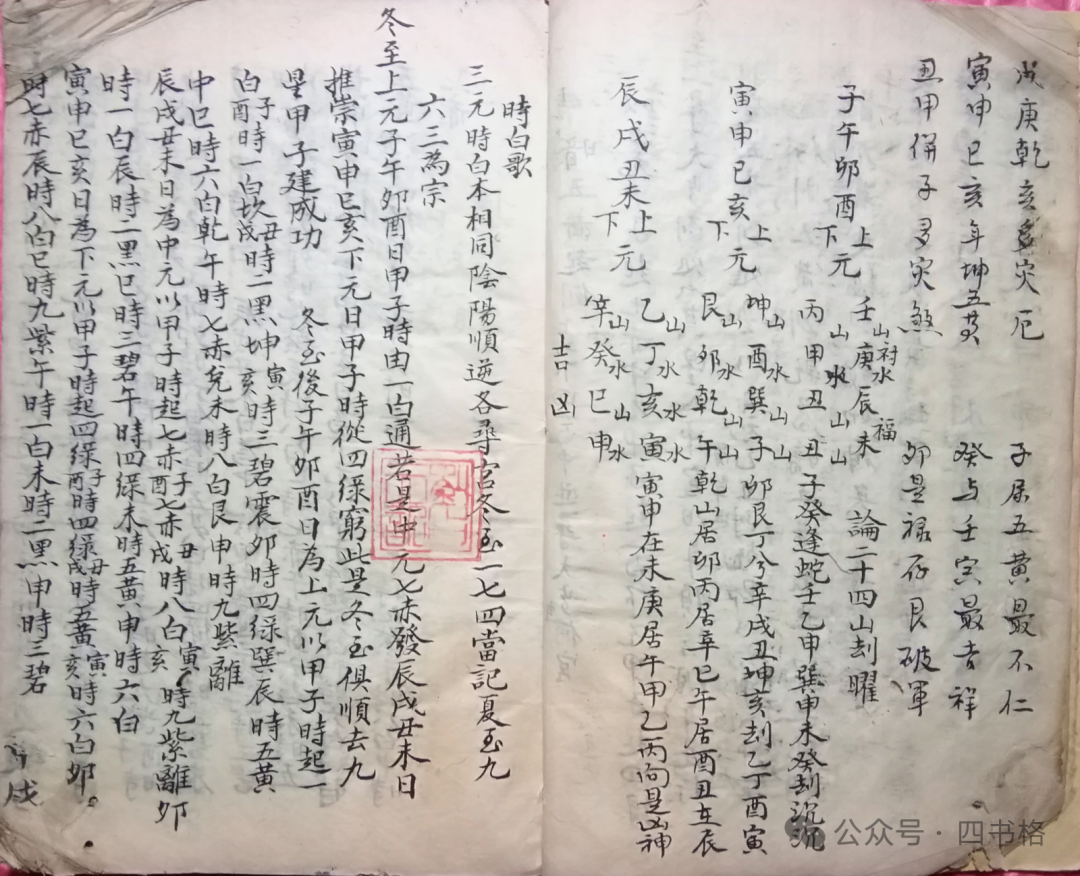 戌庚乾亥多灾厄 子居五黄最不仁
寅申巳亥年坤五黄 癸与壬寅最吉祥
丑甲併子多灾煞 卯是禄存艮破軍
子午卯酉 上元 壬山庚水辰未 福 論二十四山刦曜
下元 丙山甲水丑山丑山 子癸逢蛇壬乙申巽申未癸刦沉沉
寅申巳亥 上元 坤山酉水巽山子山 卯艮丁兮辛戌丑坤亥刦乙丁酉寅
下元 艮山卯水乾山午山 乾山居卯丙居辛巳午居酉丑在辰
辰戌丑未 上元 乙山丁水亥水寅水 寅申在未庚居午甲乙丙向是凶神
下元 辛山癸水巳山申水
吉凶
時白歌
三元時白本相同陰陽順逆各尋宫冬至一七四當記夏至九
六三為宗
冬至上元子午卯酉日甲子時由一白通若是中元七赤發辰戌丑未日
推崇寅申巳亥下元日甲子時從四緑窮此是冬至俱順去九
星甲子建成功 冬至後子午卯酉日為上元以甲子時起一
白子酉時一白坎丑戌時二黑坤寅亥時三碧震卯時四緑巽辰時五黄
中巳時六白乾午時七赤兌未時八白艮申時九紫離
辰戌丑未日為中元以甲子時起七赤子酉七赤丑戌時八白寅亥時九紫離卯
時一白辰時二黑巳時三碧午時四緑未時五黄申時六白
寅申巳亥日為下元以甲子時起四緑子酉時四緑丑戌時五黄寅亥時六白卯
時七赤辰時八白巳時九紫午時一白未時二黑申時三碧
公众号·四书格